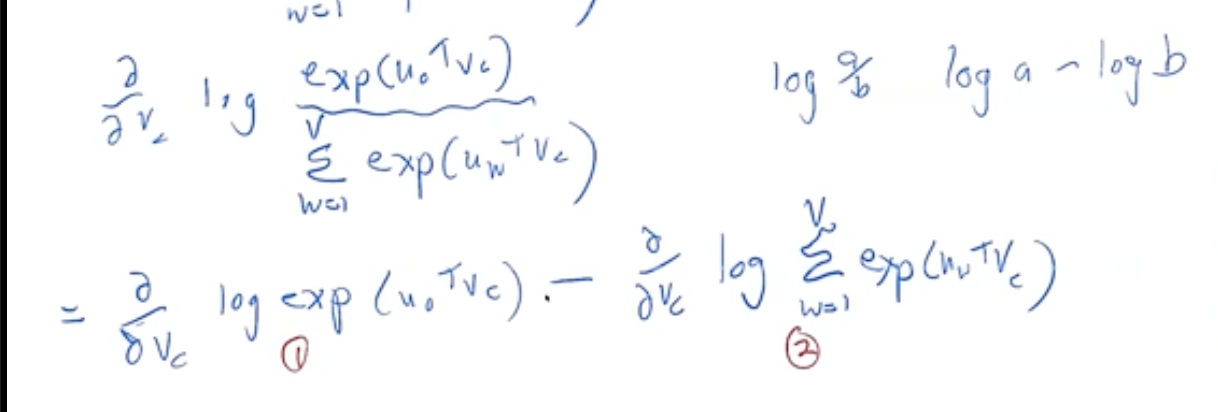 w=1
∂/∂v_c log exp(u_o^T v_c) / ∑_{w=1}^{V} exp(u_w^T v_c)
log a/b log a - log b
= ∂/∂v_c log exp(u_o^T v_c) - ∂/∂v_c log ∑_{w=1}^{V} exp(u_w^T v_c)
① ②